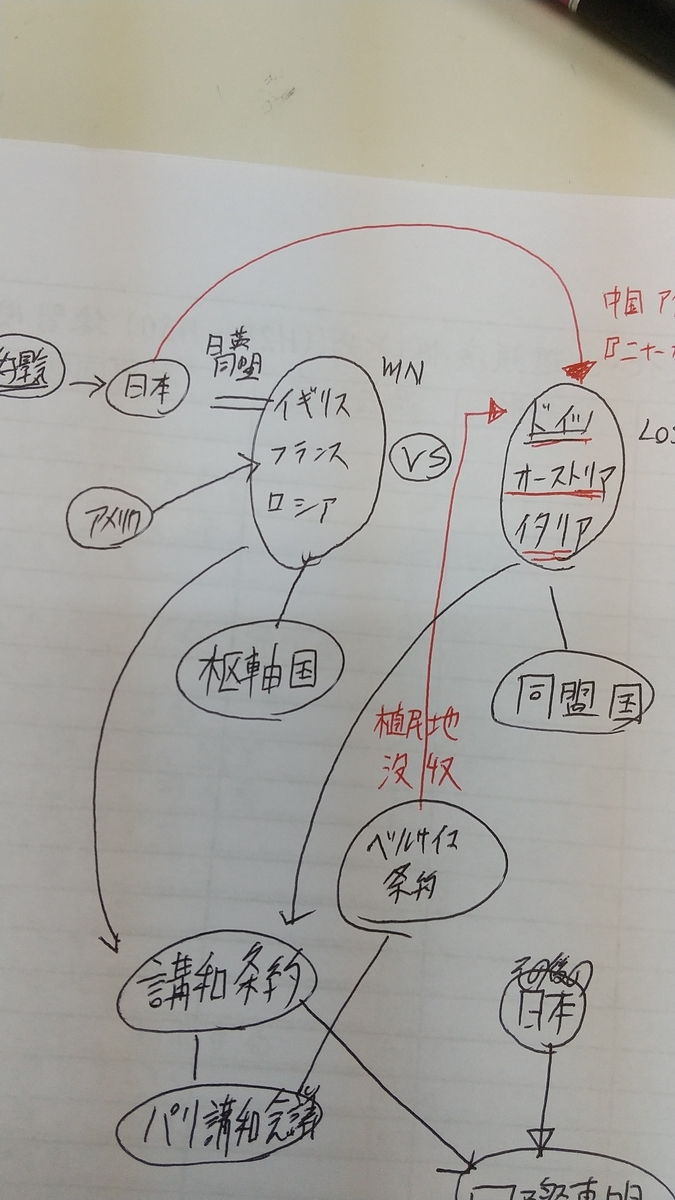 中国
日英
同盟
WIN
好景気
日本
イギリス
フランス
ロシア
VS
ドイツ
オーストリア
イタリア
アメリカ
枢軸国
同盟国
植民地
没収
ベルサイユ
条約
講和条約
その後の
日本
パリ講和会議
国際連盟